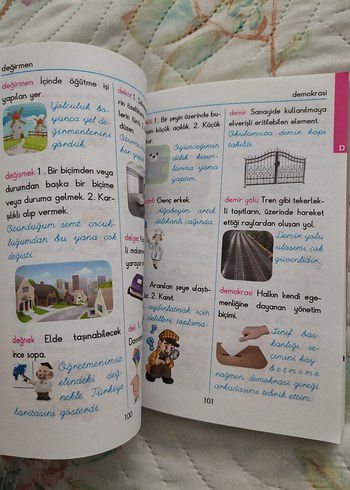 değirmen
değirmen İçinde öğütme işi
yapılan yer.
Yolculuk bo-
yunca yel de-
ğirmenlerini
gördük.
değişmek 1. Bir biçimden veya
durumdan başka bir biçime
veya duruma gelmek. 2. Kar-
şılıklı alıp vermek.
Oturduğum semt, çocuk-
luğumdan bu yana çok
değişti.
değnek Elde taşınabilecek
ince sopa.
Öğretmenimiz
elindeki değ-
nekle Türkiye
haritasını gösterdi.
100
dekor 1.
rin özelli
lerin tüm
düzen.
delgeç
yaraya
deli 1.
demokrasi
1. Bir şeyin üzerinde bu-
küçük açıklık. 2. Küçük
Oyuncağımın
delik kısım-
larına yama
yaptım.
Genç erkek.
Ağabeyim artık
delikanlı çağında.
Aranılan şeye ulaştı-
2. Kanıt.
aydınlatmak için
delilleri toplama-
demir Sanayide kullanılmaya
elverişli eritilebilen element.
Okulumuza demir kapı
takıldı.
demir yolu Tren gibi tekerlek-
li taşıtların, üzerinde hareket
ettiği raylardan oluşan yol.
Demir yolu
ulaşımı çok
güvenlidir.
demokrasi Halkın kendi ege-
menliğine dayanan yönetim
biçimi.
Sınıf baş-
kanlığı se-
çimini kay-
betmeme
rağmen demokrasi gereği
arkadaşımı tebrik ettim.
D
101